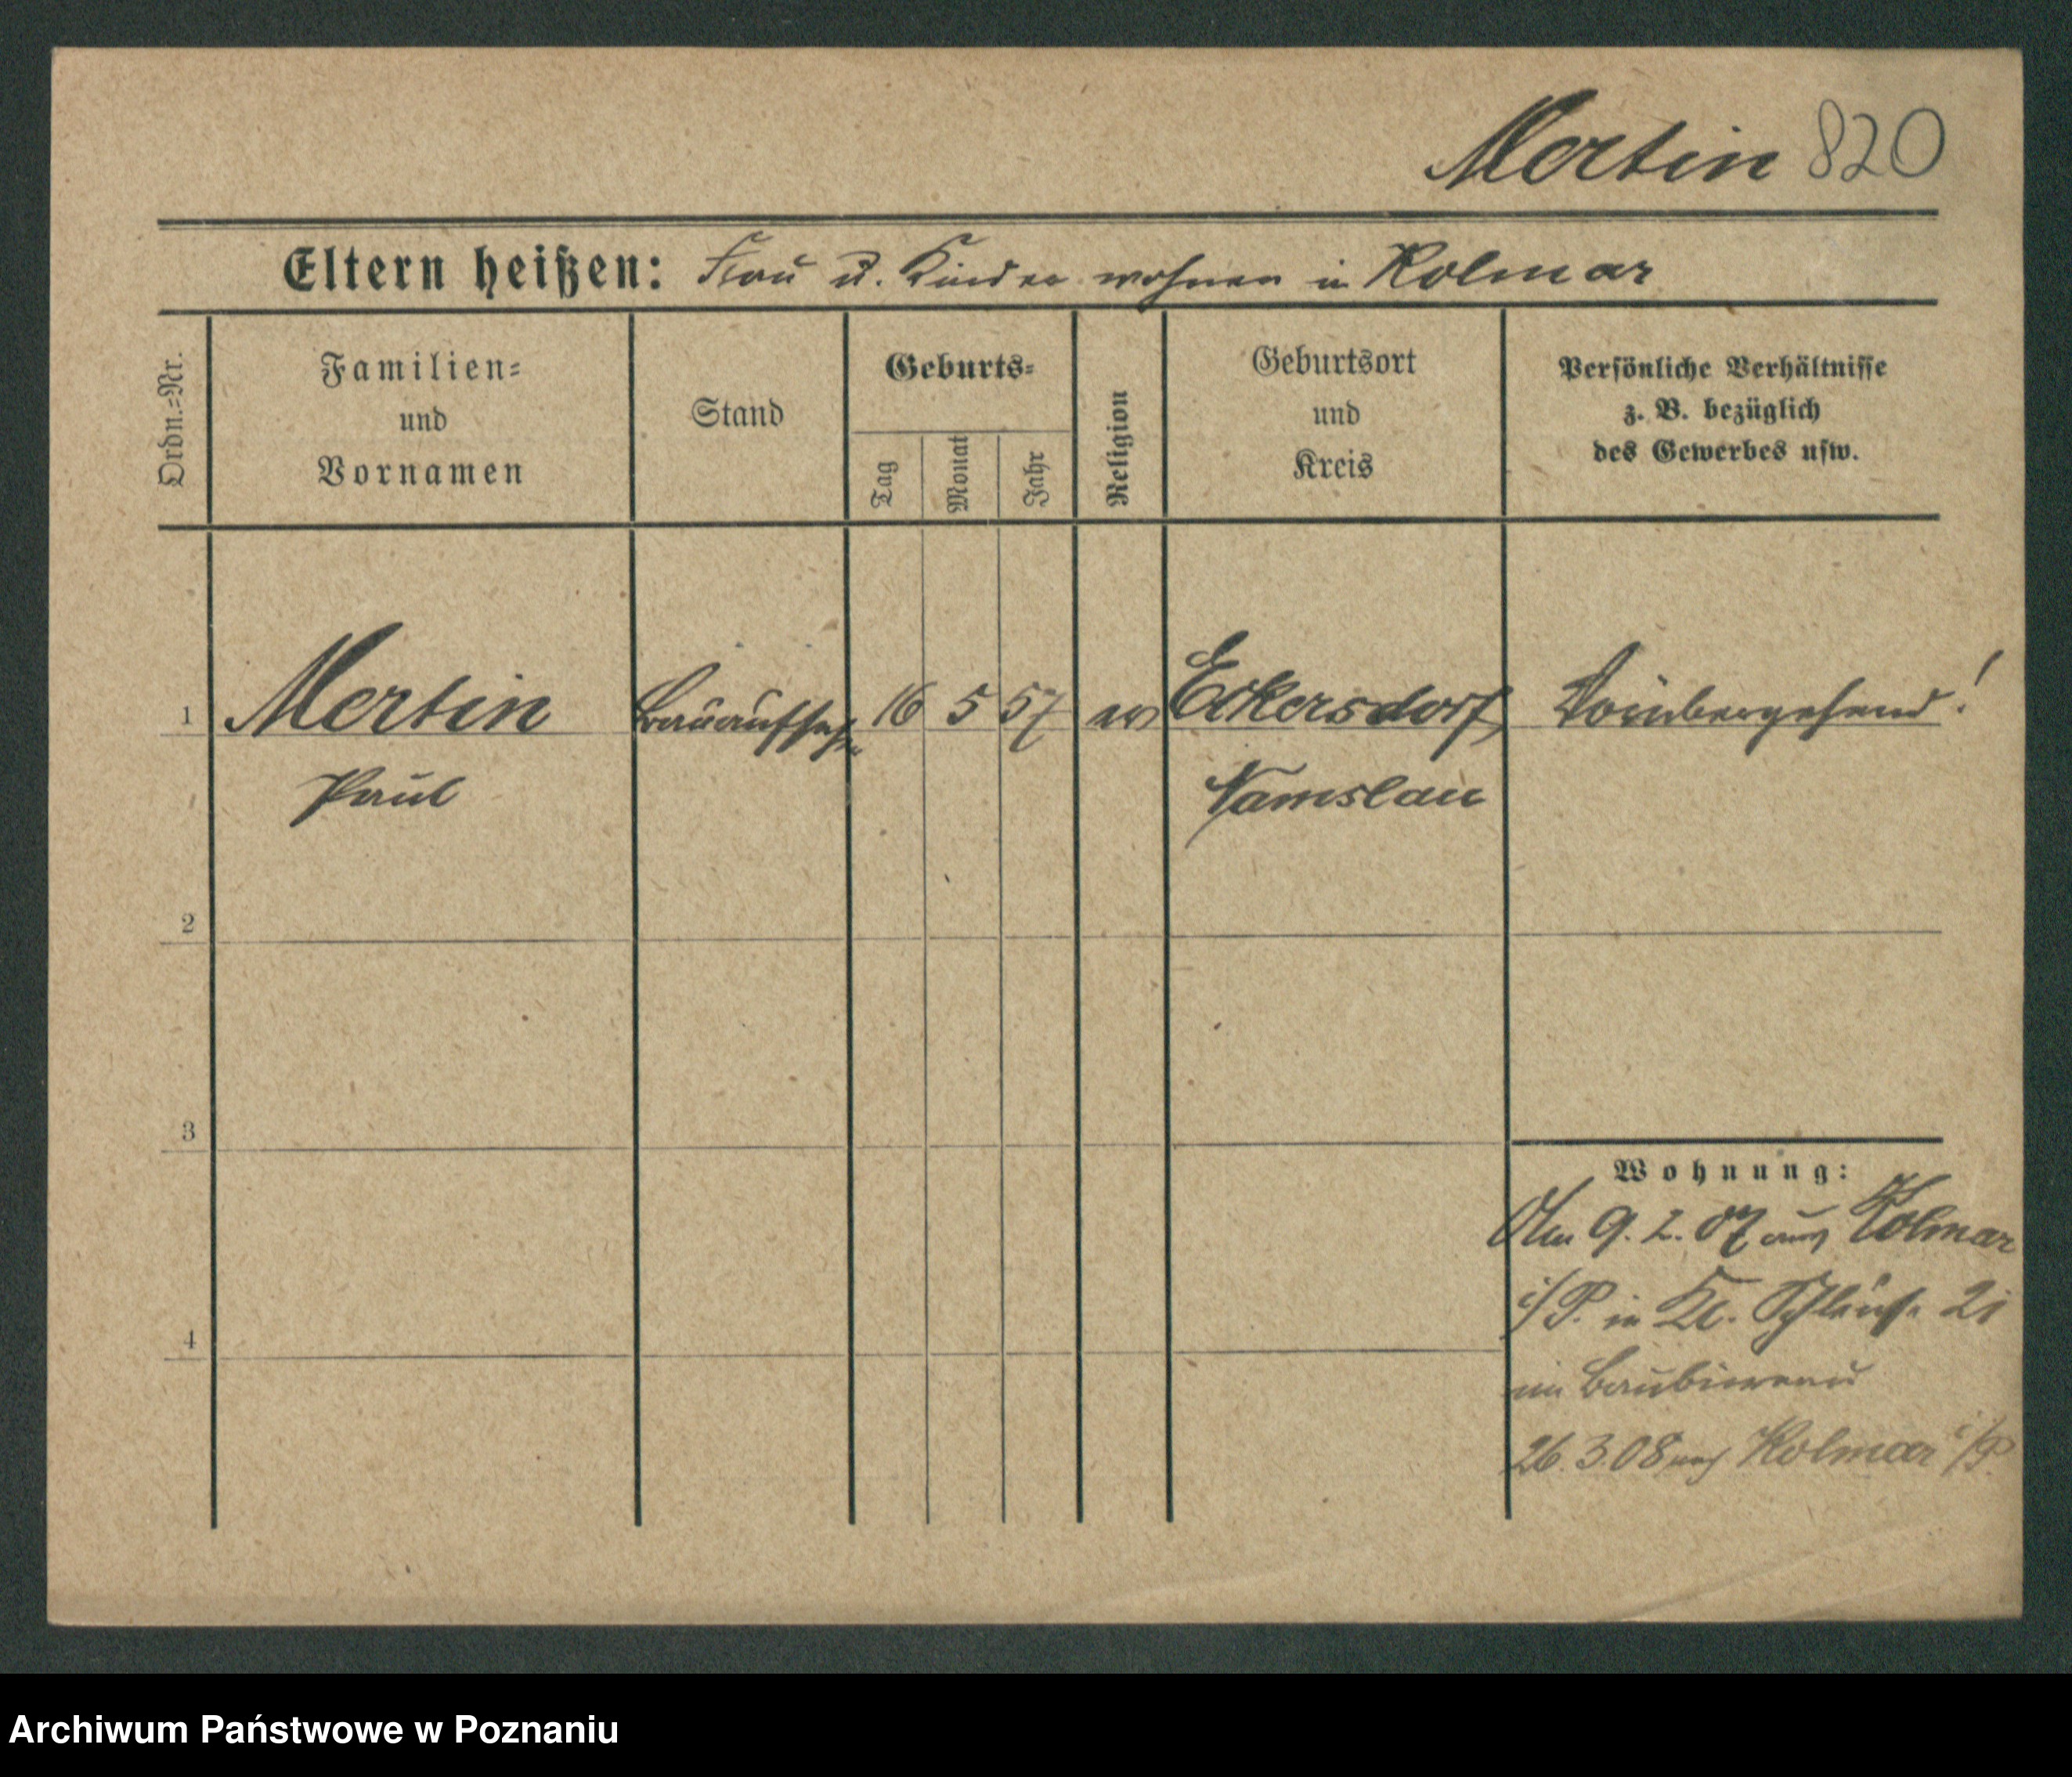 Mertin 820
Eltern heißen: Frau u. Kinder wohnen in Kolmar
Ordn.-Nr.
Familien-
und
Vornamen
Stand
Geburts-
Tag
Monat
Jahr
Religion
Geburtsort
und
Kreis
Persönliche Verhältnisse
z. B. bezüglich
des Gewerbes usw.
1 Mertin Bauaufseher 16 5 57 ev Eckersdorf Vorübergehend!
Paul Namslau
2
3
Wohnung:
Am 9. 2. 07 aus Kolmar
i/P. in Kl. Schleuse 21
4
im Baubureau
26. 3. 08 nach Kolmar i/P.
Archiwum Państwowe w Poznaniu